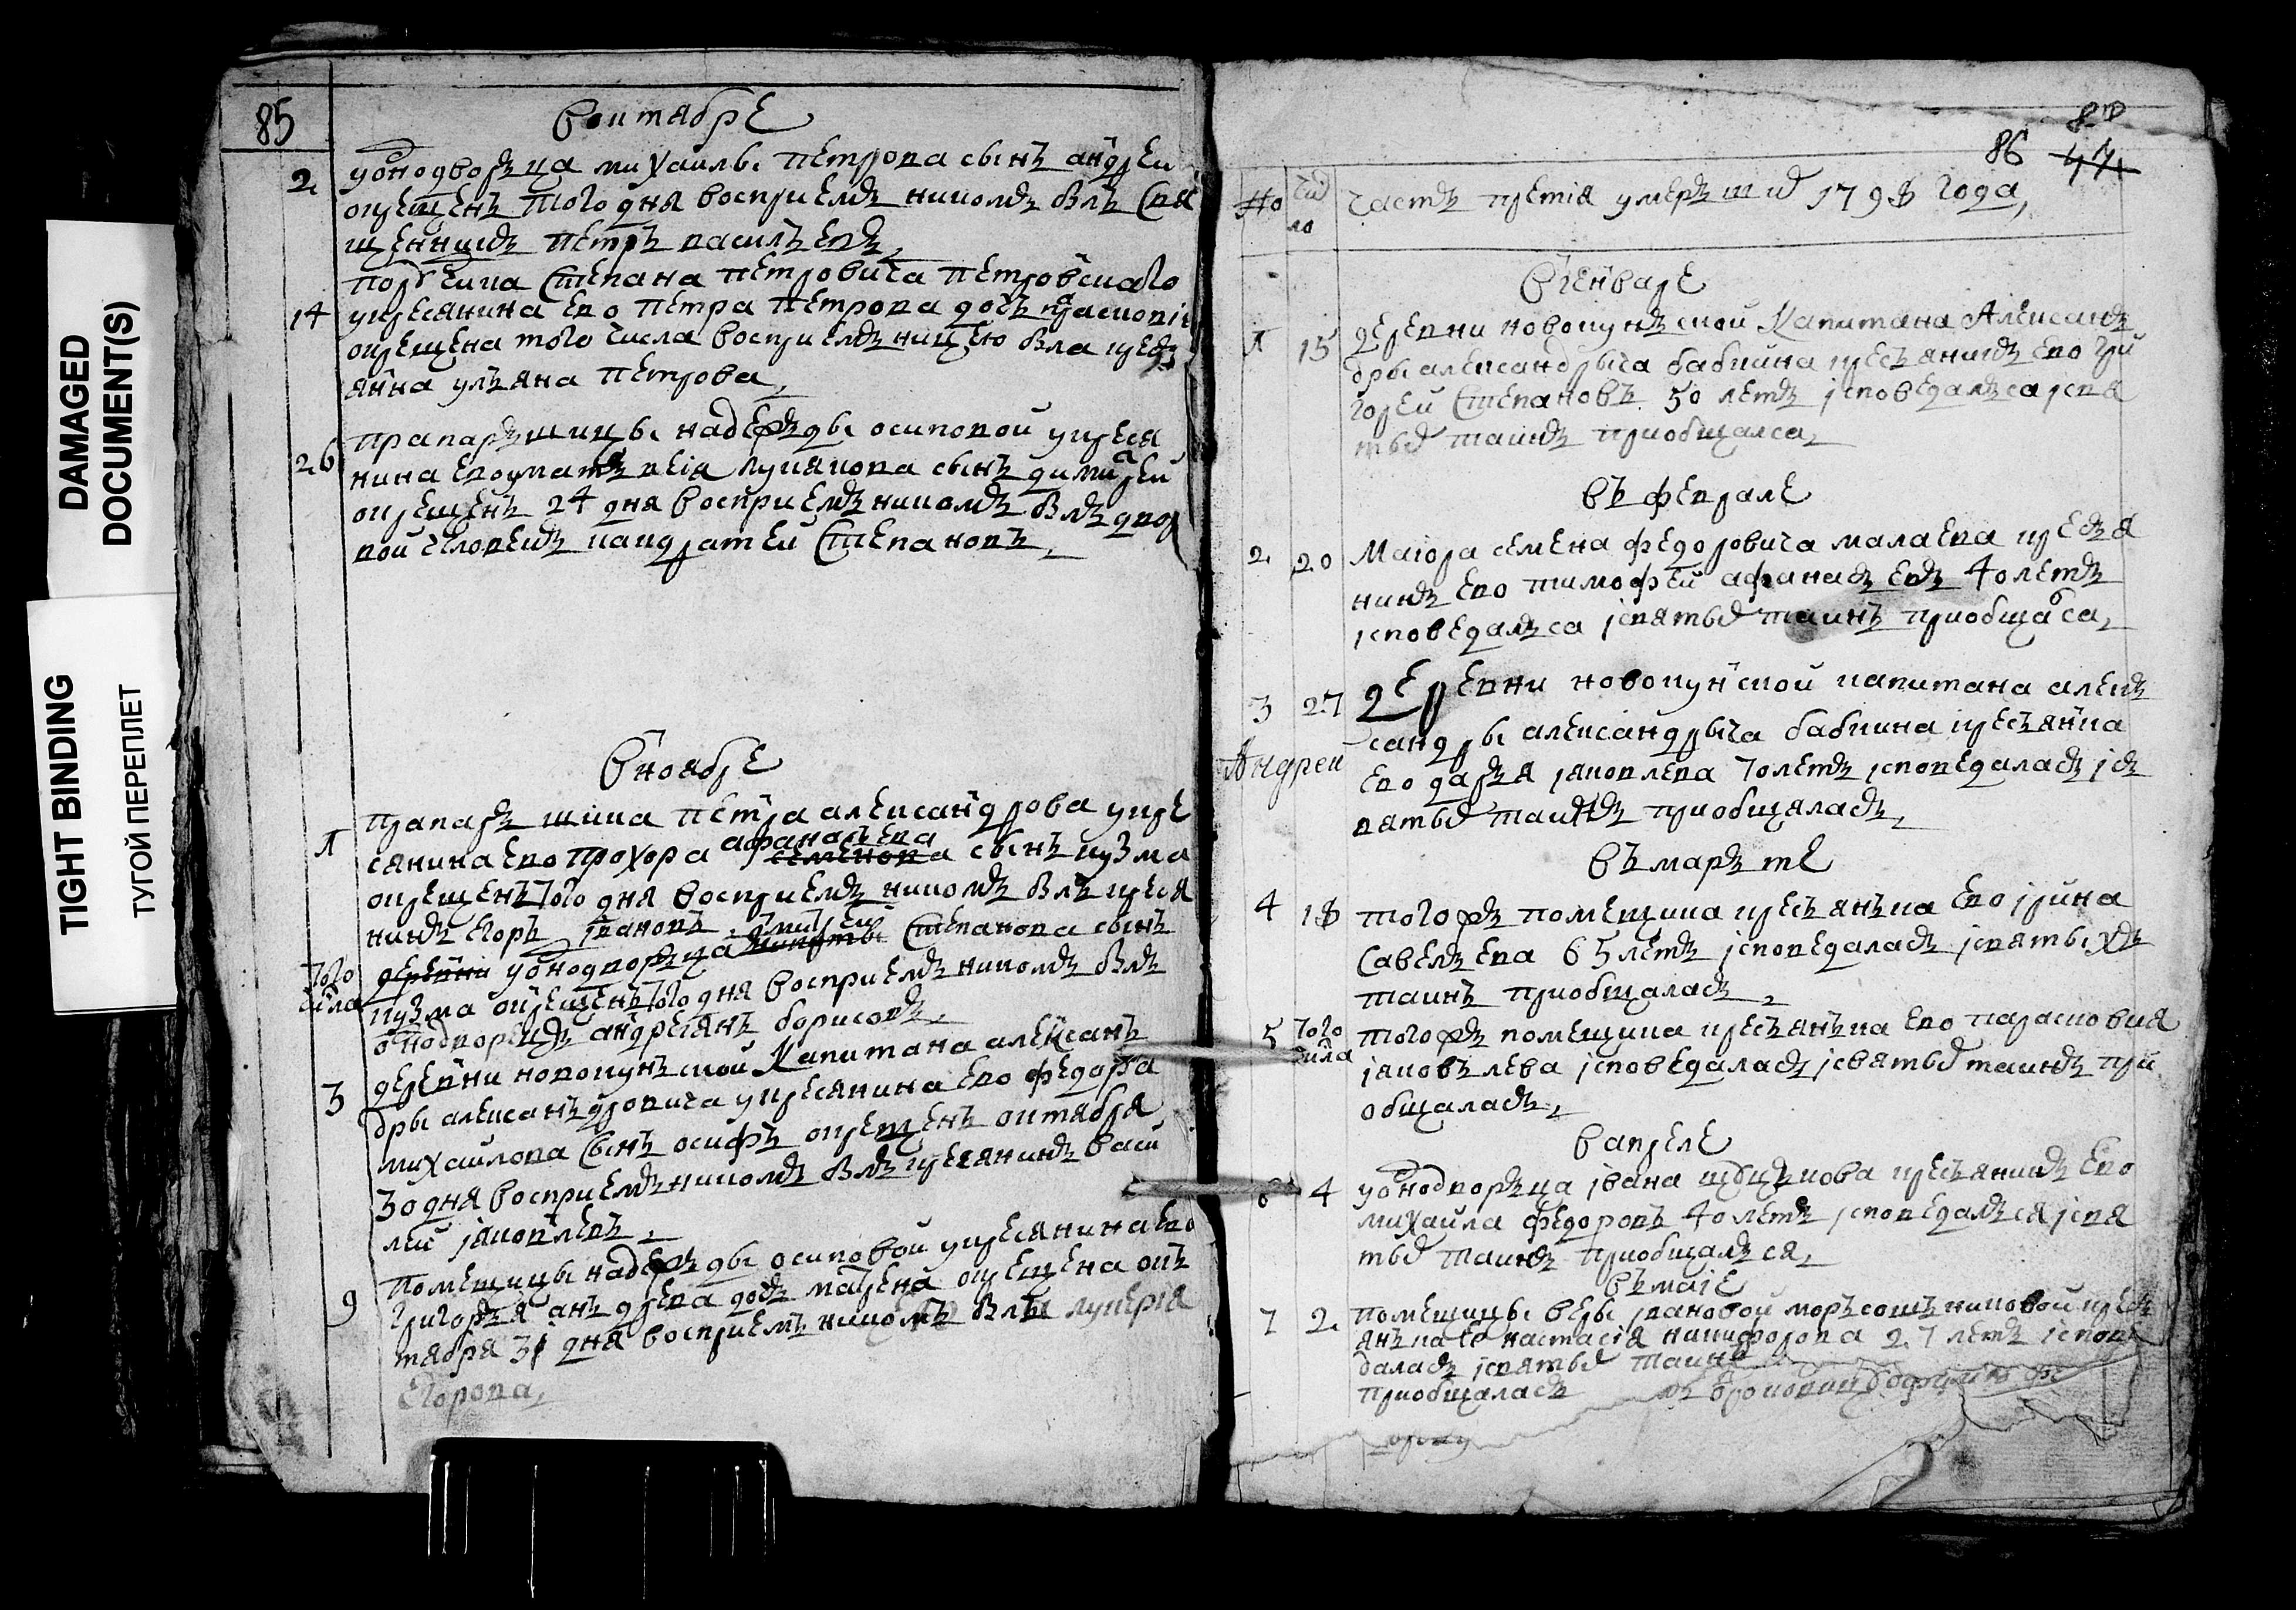 DAMAGED
DOCUMENT(S)
TIGHT BINDING
ТУГОЙ ПЕРЕПЛЕТ
85
Воктябре
2 уоднодворъца михайлы петрова сынъ андреи
окрещенъ того дня восприемъникомъ былъ свя
щенникъ петръ василъевъ
порутчика степана петровича петровскаго
14 укресянина ево петра петрова дочъ прасковія
окрещена того числа восприемъницею была кресъ
янка улъяна петрова
прапаръшицы надежъды осиповой укреся
26 нина ево лукянова сынъ димитреи
окрещенъ 24 дня восприемъникомъ былъ двор
вои человекъ кандратеи степановъ
Вноябре
прапаръшика петра александрова укре
1 сянина ево прохора афанасьева семенова сынъ кузма
окрещенъ того дня восприемъникомъ былъ креся
нинъ егоръ ивановъ
того числа деревни уоднодворъца дмитреи степанова сынъ
кузма окрещенъ того дня восприемъникомъ былъ
однодворецъ андреянъ борисовъ
3 деревни новопунъской капитана алексанъ
дры алексанъдровича укресянина ево федора
михаилова сынъ осифъ окрещенъ октября
30 дня восприемъникомъ былъ кресянинъ васи
леи яковлевъ
помещицы надежъды осиповой укресянина ево
9 григоръя анъдреева дочь матрена окрещена окъ
тября 31 дня восприемъникомъ былы лукерія
егорова
86 47
Но число Частъ третія умеръшихъ 1798 года
Вгенваре
1 15 деревни новопунъской капитана алексанъ
дры александрыча бабкина кресъянинъ ево гри
гореи степановъ 50 летъ исповедалъса исвя
тыхъ таинъ приобщалса
Въ феврале
2 20 маиора семена федоровича малаева кресъя
нинъ ево тимофеи афанасъевъ 40 летъ
исповедалъса исвятыхъ таинъ приобщалса
3 27 деревни новопунской капитана алекъ
сандры александрыча бабкина кресъянка
Андреи ево даръя яковлева 70 летъ исповедаласъ исъ
вятыхъ таинъ приобщяласъ
Въ маръте
4 18 тогожъ помещика кресъянъка ево ирина
савелъева 65 летъ исповедаласъ исвятыхъ
таинъ приобщаласъ
5 того числа тогожъ помещика кресъянъка ево парасковия
яковълева исповедаласъ исвятыхъ таинъ при
общаласъ
Вапреле
6 4 уоднодворъца ивана кресъянинъ ево
михаила федоровъ 40 летъ исповедалъся исвя
тыхъ таинъ приобщалъся
Въ маіе
7 2 помещицы веры ивановой кресъ
янъка ее настасія никифорова 27 летъ испове
даласъ исвятыхъ таинъ
приобщаласъ